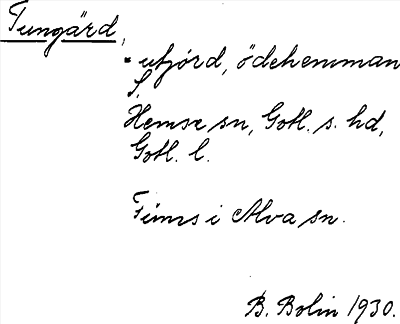 Tungärd,
= utjórd, ödehemman
S.
Hemse sn, Gotl. s. hd,
Gotl. l.
Finns i Alva sn.
B. Bolin 1930.